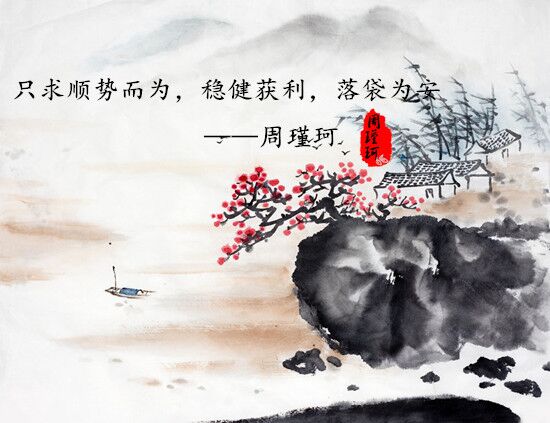 只求顺势而为，稳健获利，落袋为安
——周瑾珂
周瑾珂